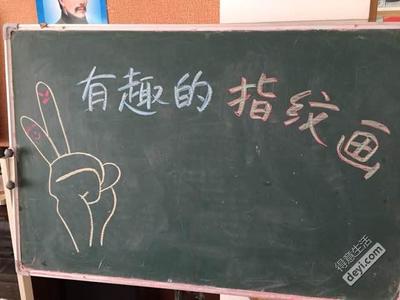 有趣的指纹画
得意生活
deyi.com